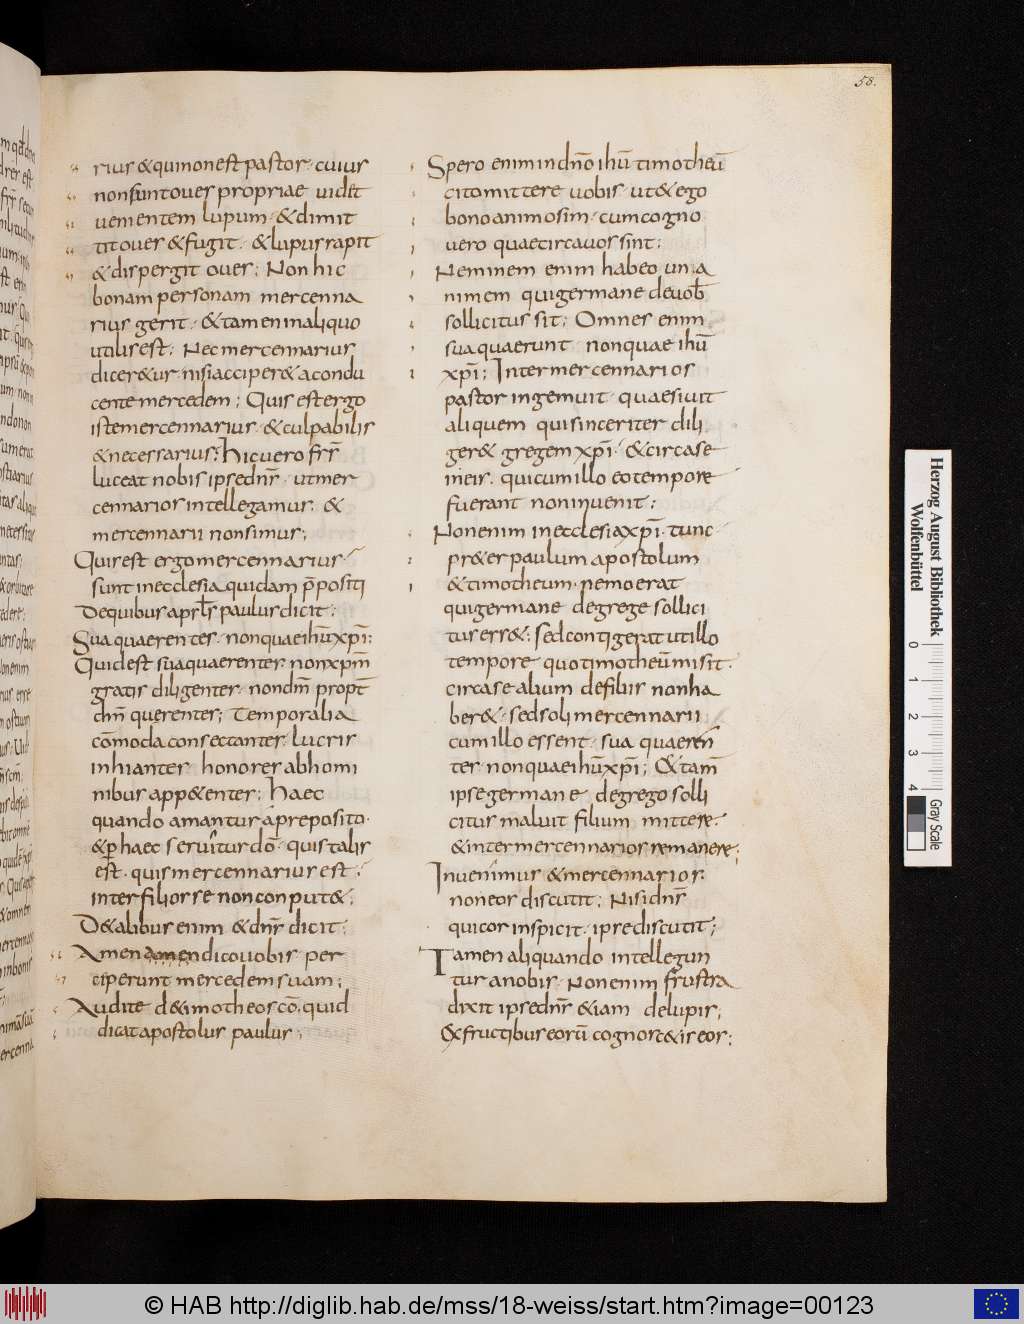 58.
rius &quinonestpastor· cuius
nonsuntoues propriae uid&
uenientem lupum· &dimit
titoues &fugit· &lupusrapit
&dispergit oues; Non hic
bonam personam mercenna
rius gerit· &tameninaliquo
utilisest; Necmercennarius
dicer&ur· nisiacciper& aconduc
centemercedem; Quis estergo
istemercennarius· &culpabilis
&necessarius; Hicuero frs̄
luceat nobis ipsedn̄s· utmer
cennariosintellegamus· &
mercennarii nonsimus;
Quisest ergomercennarius·
sunt inecclesia quidam p̄positi
Dequibus apsl̄s paulusdicit;
Sua quaerentes· nonquaeihūxp̄i;
Quidest suaquaerentes nonxpm̄
gratis diligentes· nondm̄ propt̄
dm̄ querentes; Temporalia
cōmoda consectantes· lucris
inhiantes honores abhomi
nibus app&entes; Haec
quando amantur apreposito·
&p̱ haec seruitur dō· quis talis
est· quismercennarius est;
interfiliosse nonconput&;
D&alibus enim &dn̄s dicit;
Amen amen dicouobis per
ciperunt mercedem suam;
Audite d&imotheoscō· quid
dicatapostolus paulus;
Spero enim indn̄o ihū timotheū
citomittere uobis· ut&ego
bonoanimosim· cumcogno
uero quaecircauossint;
Neminem enim habeo una
nimem quigermane deuob̄
sollicitus sit; Omnes enim
sua quaerunt nonquae ihū
xp̄i; Intermercennarios
pastor ingemuit· quaesiuit
aliquem quisinceriter dili
ger& gregem xp̄i· &circase
ineis· quicumillo eotempore
fuerant noninuenit;
Nonenim inecclesiaxp̄i· tunc·
pr&erpaulum apostolum
&timotheum· nemoerat
quigermane degrege sollici
tus ess&; sedcontigerat utillo
tempore quotimotheūmisit·
circase alium defiliis nonha
ber&· sedsoli mercennarii
cumillo essent· sua quaeren
tes nonquaeihūxp̄i; &tam̄
ipsegermane degrego solli
citus maluit filium mittere·
&intermercennarios remanere;
Inuenimus &mercennarios·
noneos discutit; Nisidn̄s
quicor inspicit· ipsediscutit;
Tamen aliquando intellegun
tur anobis· Nonenim frustra
dixit ipsedn̄s &iam delupis;
&fructibus eorū cognosc&iseos;
Herzog August Bibliothek
Wolfenbüttel
0 1 2 3 4
Gray Scale
© HAB http://diglib.hab.de/mss/18-weiss/start.htm?image=00123